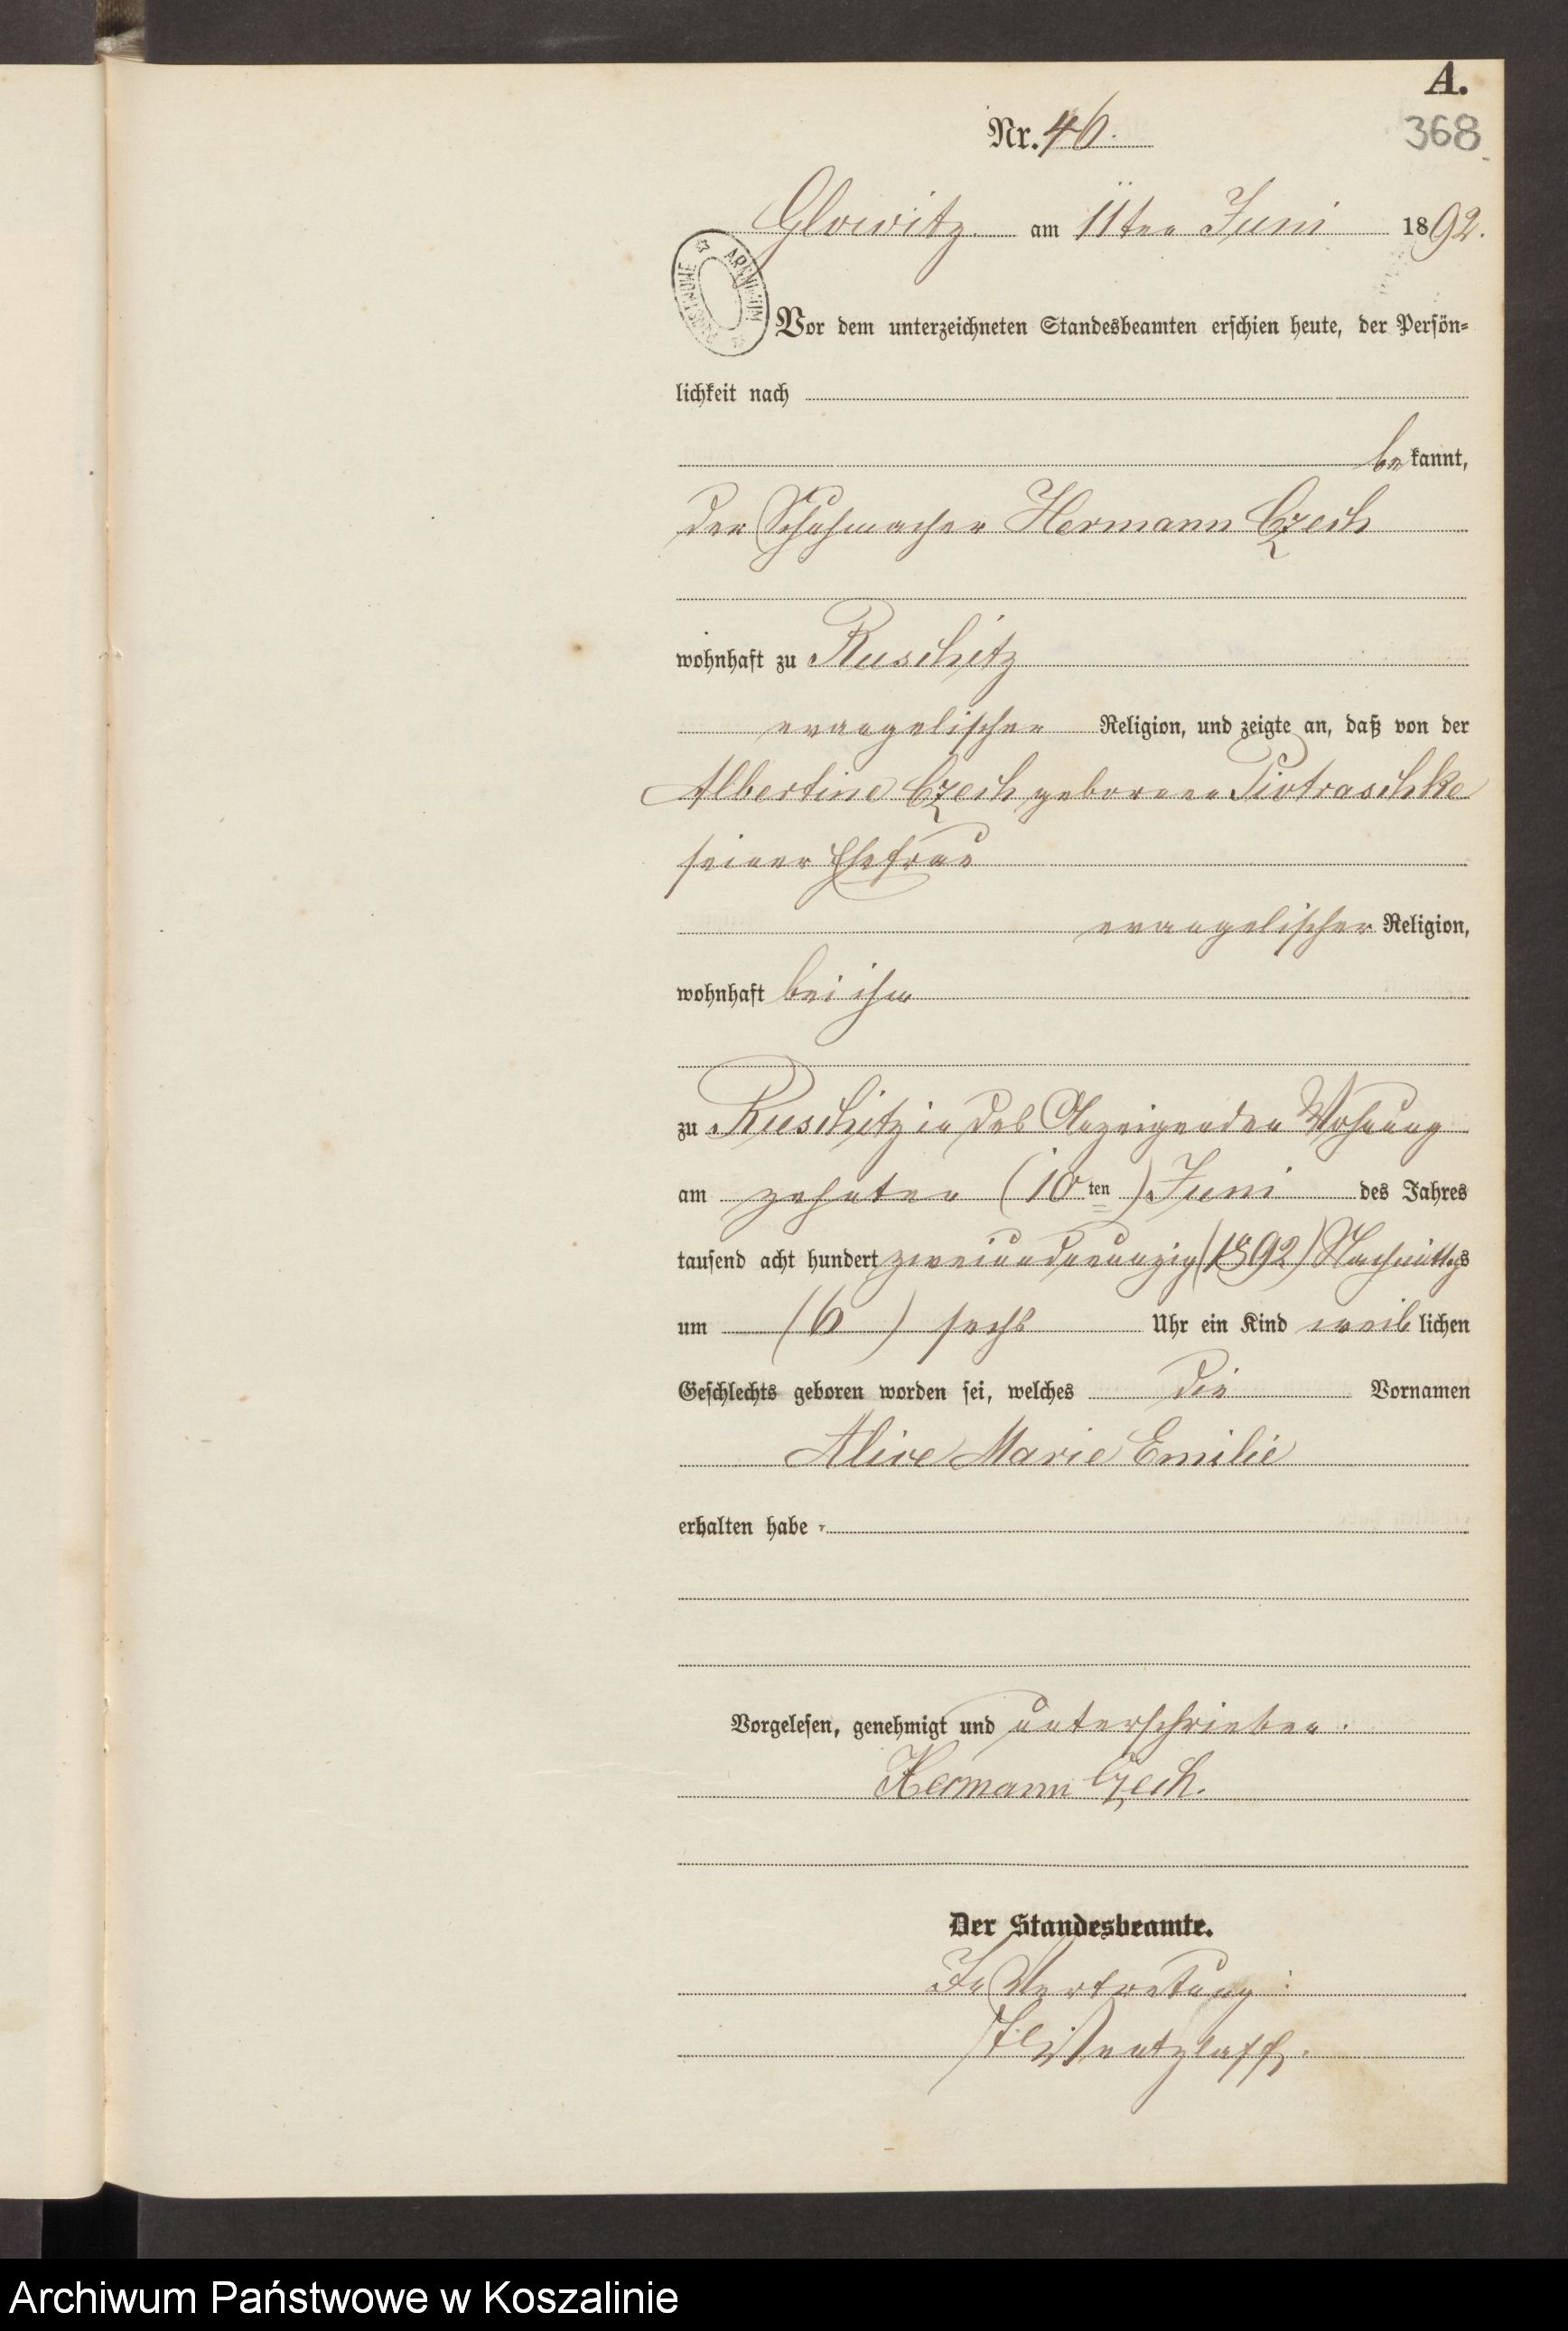 A.
Nr. 46.
368
Glowitz am 11ten Juni 1892.
ARCHIWUM PAŃSTWOWE
Vor dem unterzeichneten Standesbeamten erschien heute, der Persön-
lichkeit nach
bekannt,
der Schuhmacher Hermann Czech
wohnhaft zu Ruschitz
evangelischer Religion, und zeigte an, daß von der
Albertine Czech geborenen Piotraschke
seiner Ehefrau
evangelischer Religion,
wohnhaft bei ihm
zu Ruschitz in des Anzeigenden Wohnung
am zehnten (10ten) Juni des Jahres
tausend acht hundert zweiundneunzig (1892) Nachmittags
um (6) sechs Uhr ein Kind weiblichen
Geschlechts geboren worden sei, welches die Vornamen
Alice Marie Emilie
erhalten habe.
Vorgelesen, genehmigt und unterschrieben.
Hermann Czech.
Der Standesbeamte.
In Vertretung:
Archiwum Państwowe w Koszalinie